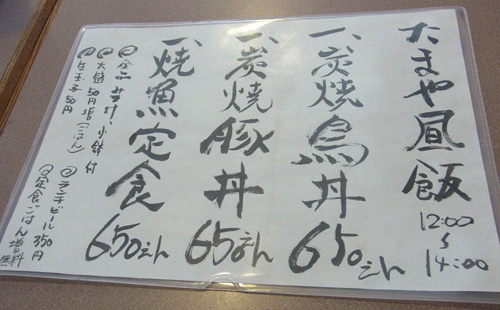 たまや昼飯
12:00
〜
14:00
一、炭焼鳥丼
650えん
一、炭焼豚丼
650えん
一、焼魚定食
650えん
全品みそ汁、小鉢付
大盛50円増(ごはん)
生玉子50円
ランチビール350円
定食ごはん増量無料